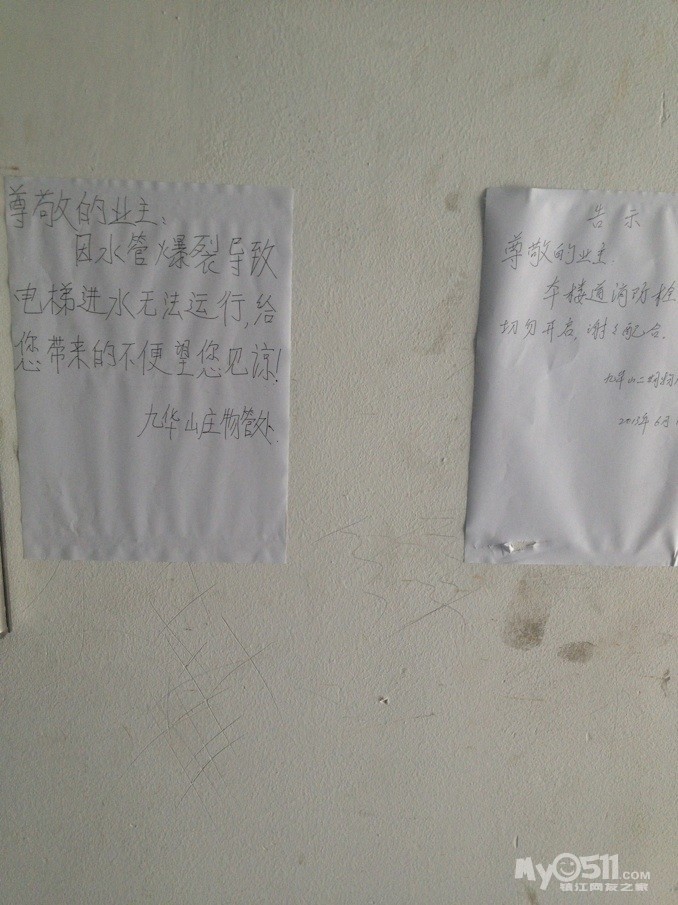 尊敬的业主:
因水管爆裂导致
电梯进水无法运行,给
您带来的不便望您见谅!
九华山庄物管处
告示
尊敬的业主:
本楼道消防栓
切勿开启,谢谢配合。
九华山二期物
2013年6月
My0511.com
镇江网友之家